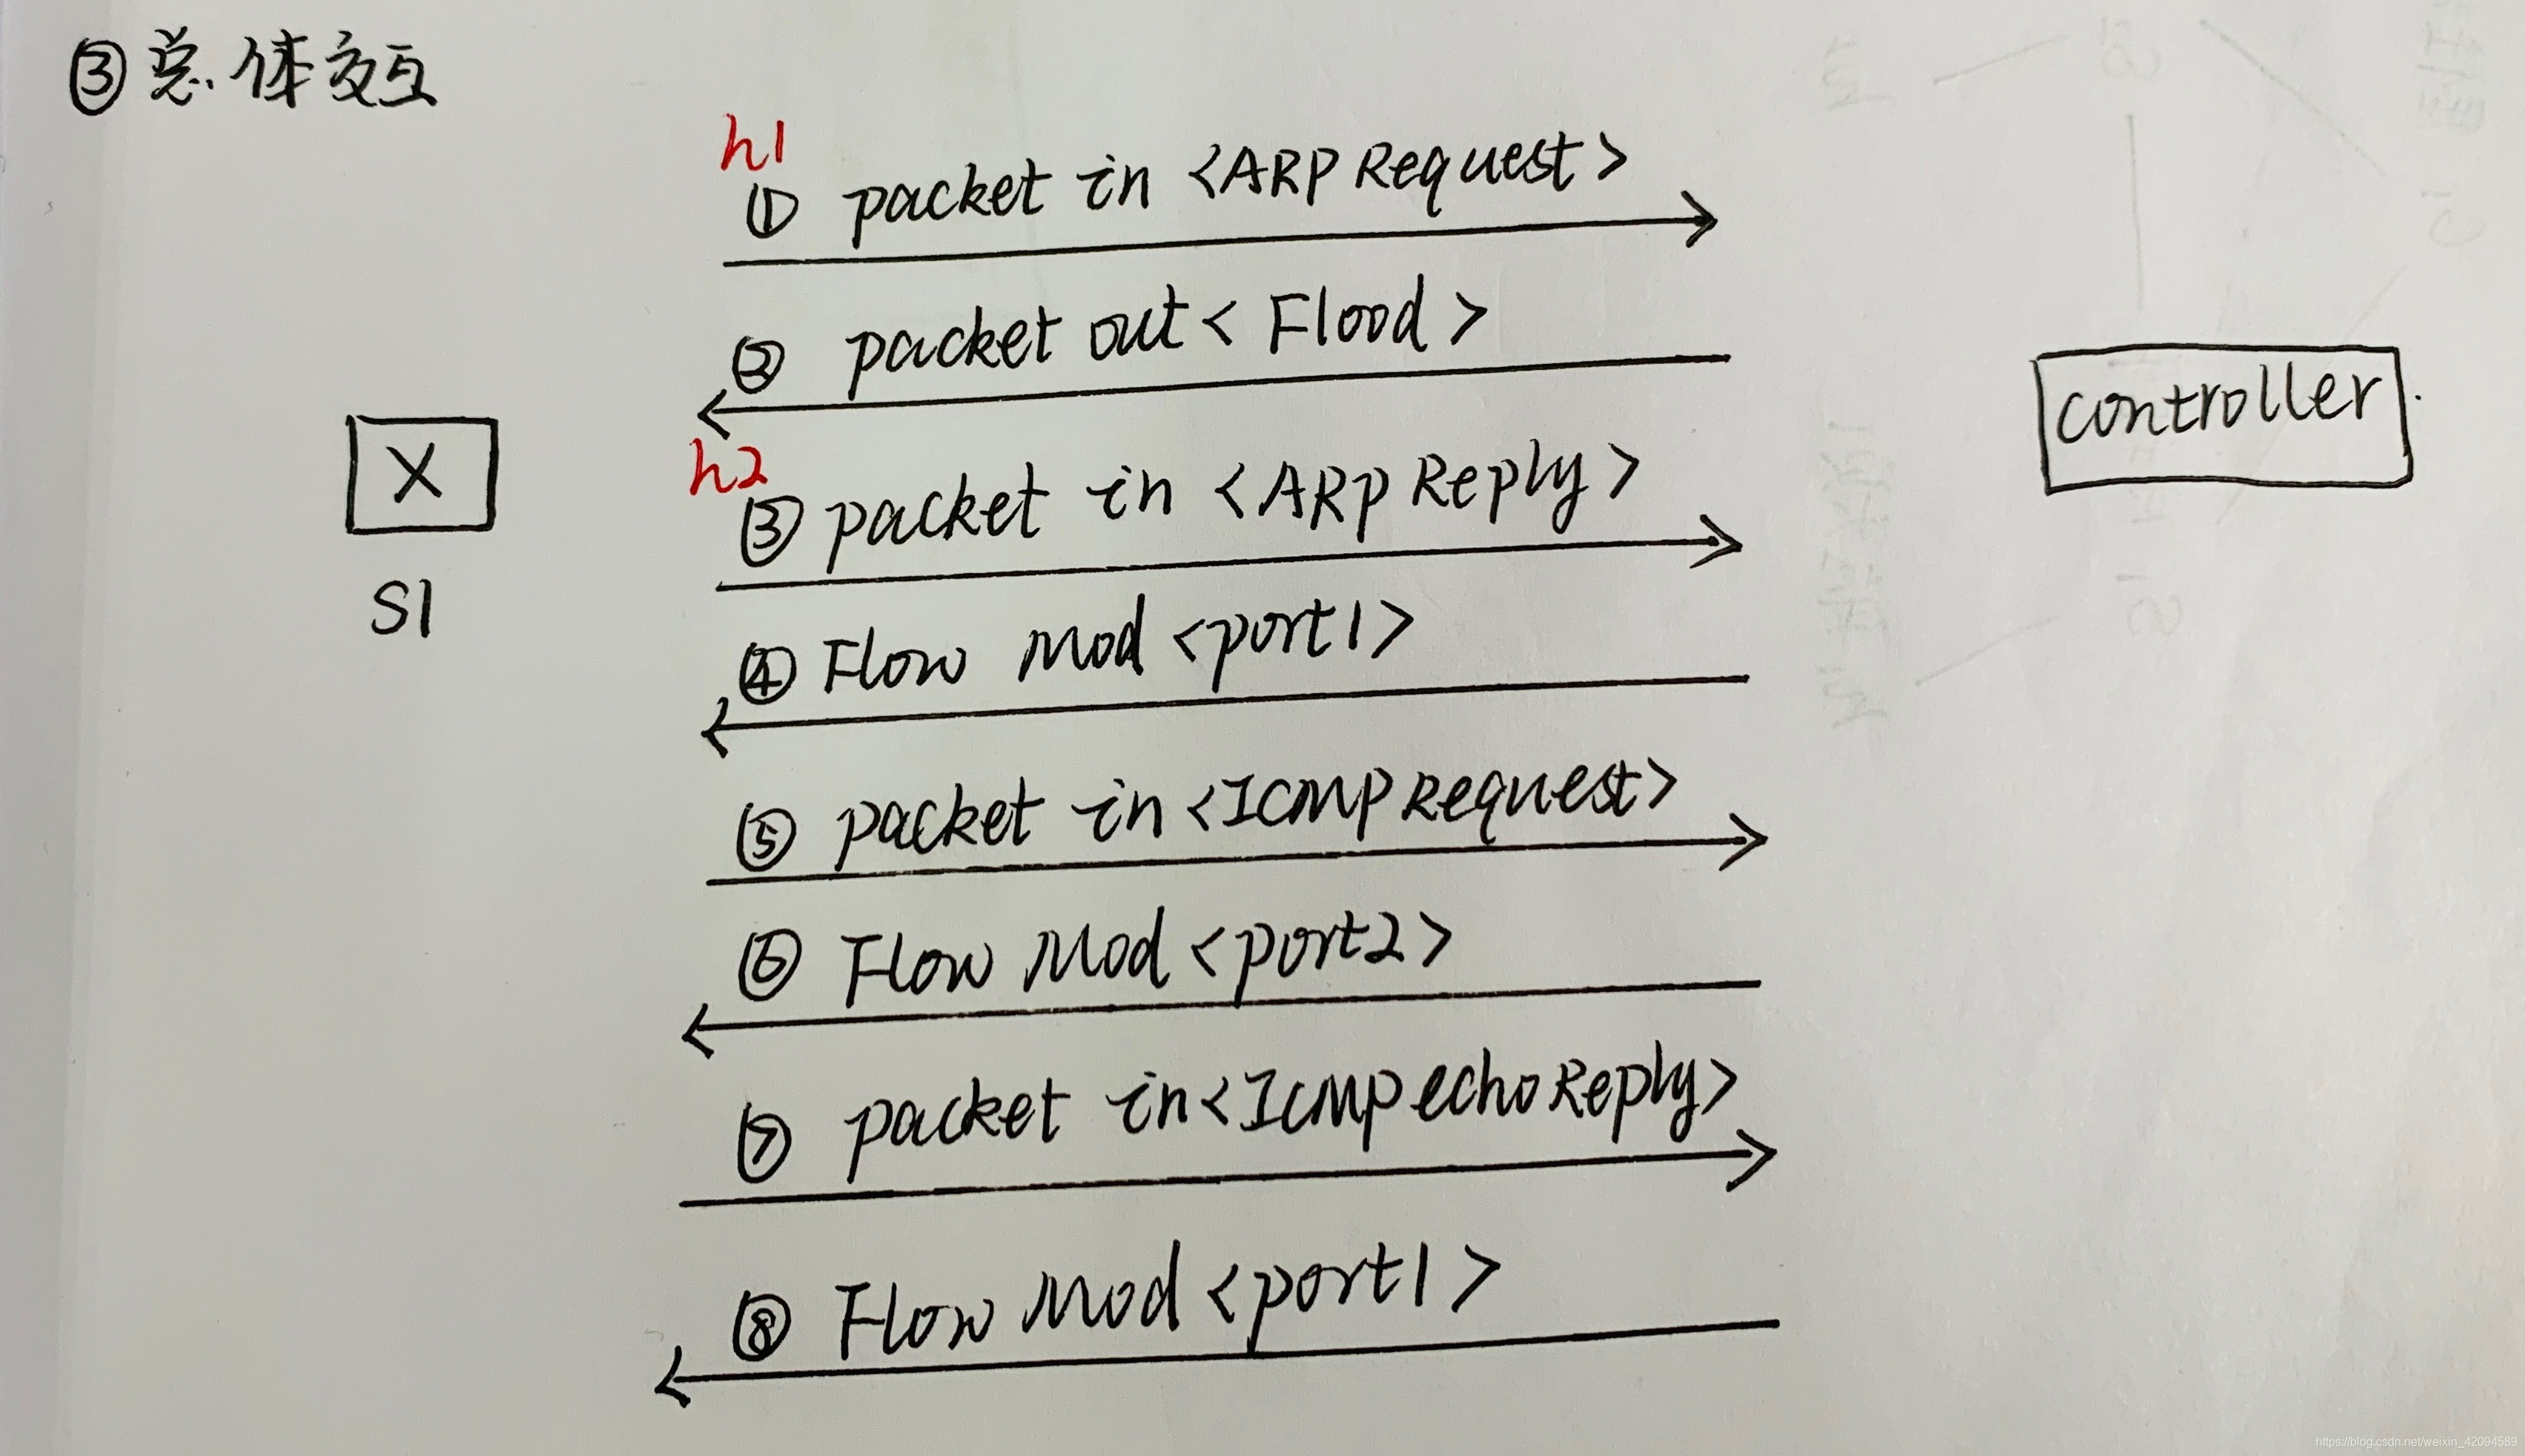 ③总体交互
h1
① packet in <ARP Request>
② packet out < Flood >
h2
③ packet in <ARP Reply>
④ Flow Mod <port1>
⑤ packet in <ICMP Request>
⑥ Flow Mod <port2>
⑦ packet in <ICMP echo Reply>
⑧ Flow Mod <port1>
X
S1
controller
https://blog.csdn.net/weixin_42094589